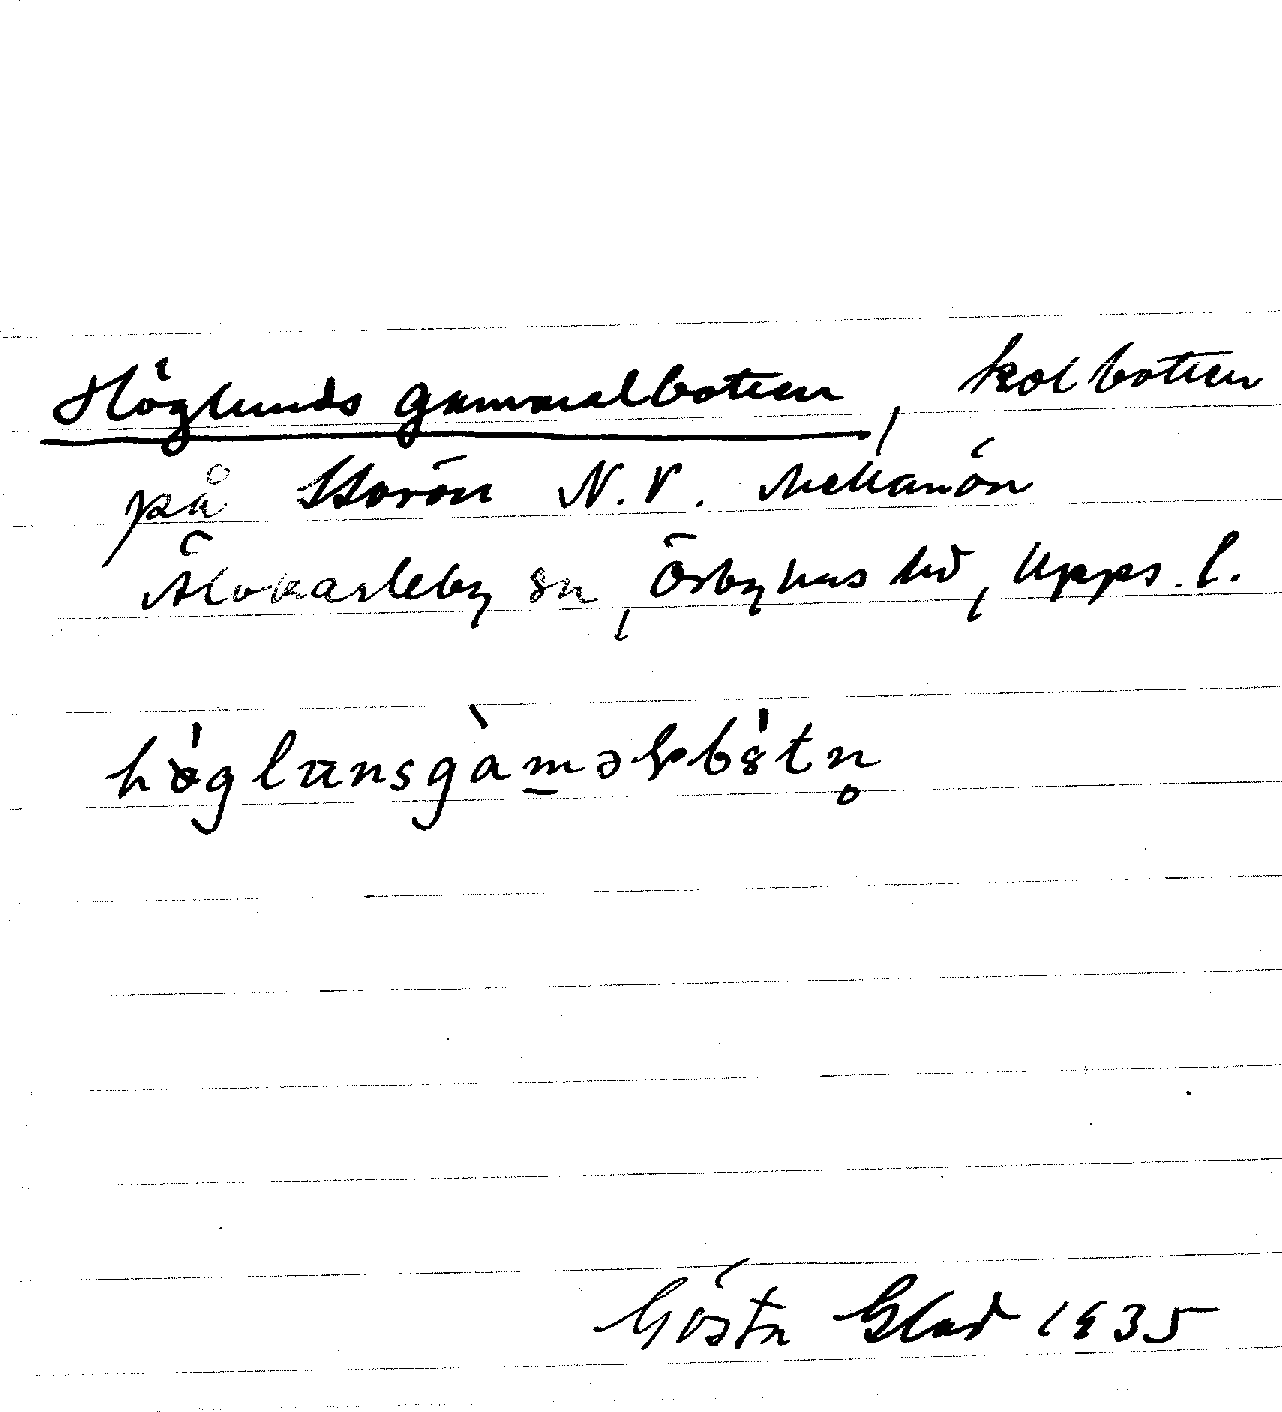 Höglunds gammalbotten, kolbotten
på Storön N.V. Mellanön
Älvkarleby sn, Örbyhus hd, Upps. l.
Gösta Glad 1935